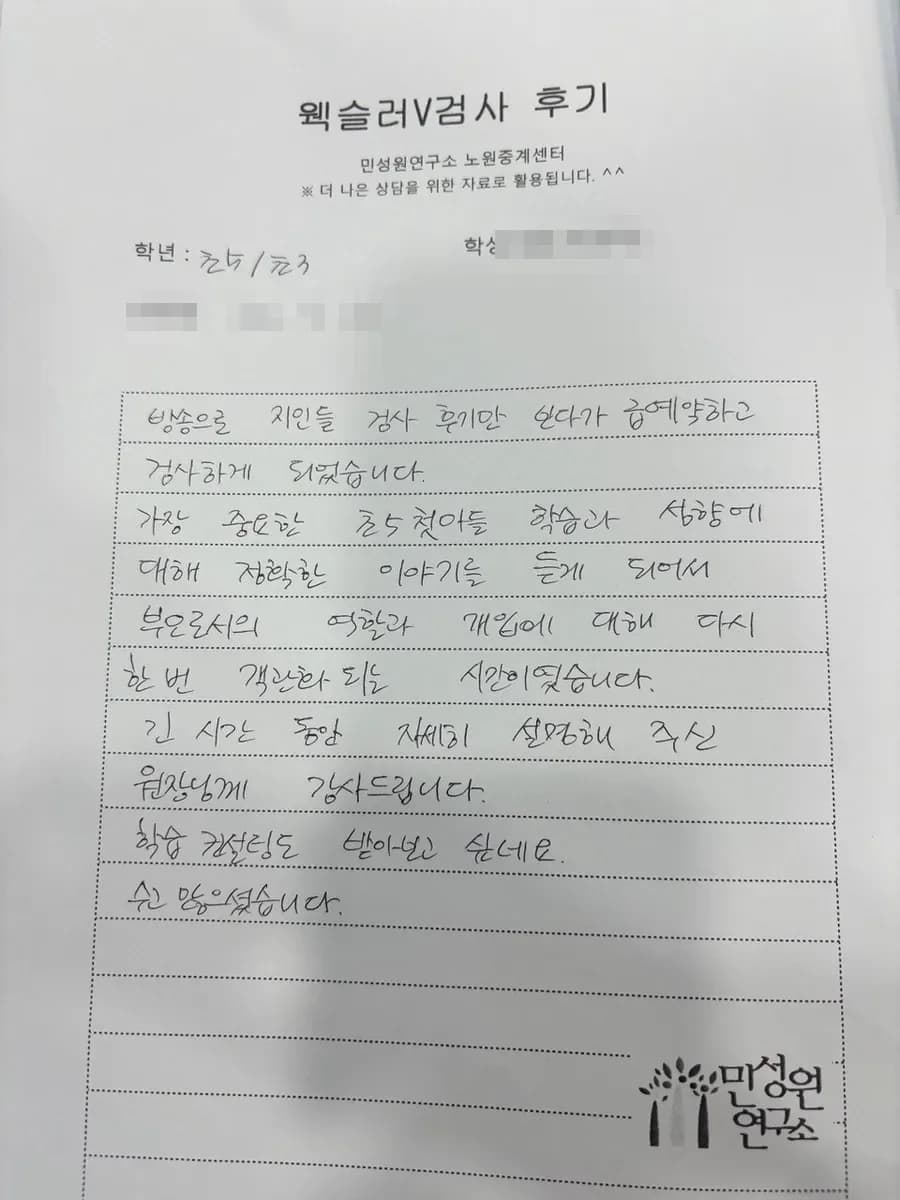 웩슬러V검사 후기
민성원연구소 노원중계센터
※ 더 나은 상담을 위한 자료로 활용됩니다. ^^
학년 : 초5/초3
방송으로 지인들 검사 후기만 보다가 급예약하고
검사하게 되었습니다.
가장 중요한 초5 첫아들 학습과 성향에
대해 정확한 이야기를 듣게 되어서
부모로서의 역할과 개입에 대해 다시
한번 객관화 되는 시간이였습니다.
긴 시간 동안 자세히 설명해 주신
원장님께 감사드립니다.
학습 컨설팅도 받아보고 싶네요.
수고 많으셨습니다.
민성원
연구소